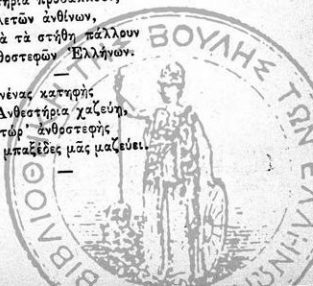 τήρια
λετῶν ἀνθίνων,
τὰ στήθη πάλλουν
θοστεφῶν Ἑλλήνων.
νένας κατηφὴς
Ἀνθεστήρια χαζεύῃ,
τώρ' ἀνθοστεφὴς
μπαξέδες μᾶς μαζεύει.
ΒΟΥΛΗΣ ΤΩΝ ΕΛΛΗΝΩΝ